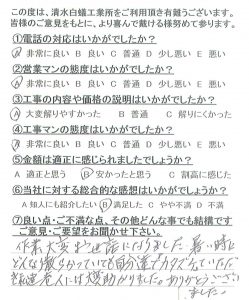 この度は、清水白蟻工業所をご利用頂き有難うございます。
皆様のご意見をもとに、より喜んで戴ける様努めて参ります。
①電話の対応はいかがでしたか？
A 非常に良い B 良い C 普通 D 少し悪い E 悪い
②営業マンの態度はいかがでしたか？
A 非常に良い B 良い C 普通 D 少し悪い E 悪い
③工事の内容や価格の説明はいかがでしたか？
A 大変解りやすかったい B 普通 C 解りにくかった
④工事マンの態度はいかがでしたか？
A 非常に良い B 良い C 普通 D 少し悪い E 悪い
⑤金額は適正に感じられましたでしょうか？
A 適正と思う B 安かったと思う C 割高に感じた
⑥当社に対する総合的な感想はいかがでしょうか？
A 知人にも紹介したい B 満足した C やや不満 D 不満
⑦良い点・ご不満な点、その他どんな事でも結構です
ご意見・ご要望をお聞かせ下さい。
作業大変お世話になりました。暑い時に
どんな散らかっていても自分達でカタズケていただき
大変助かりました。ありがとうござい
ました。